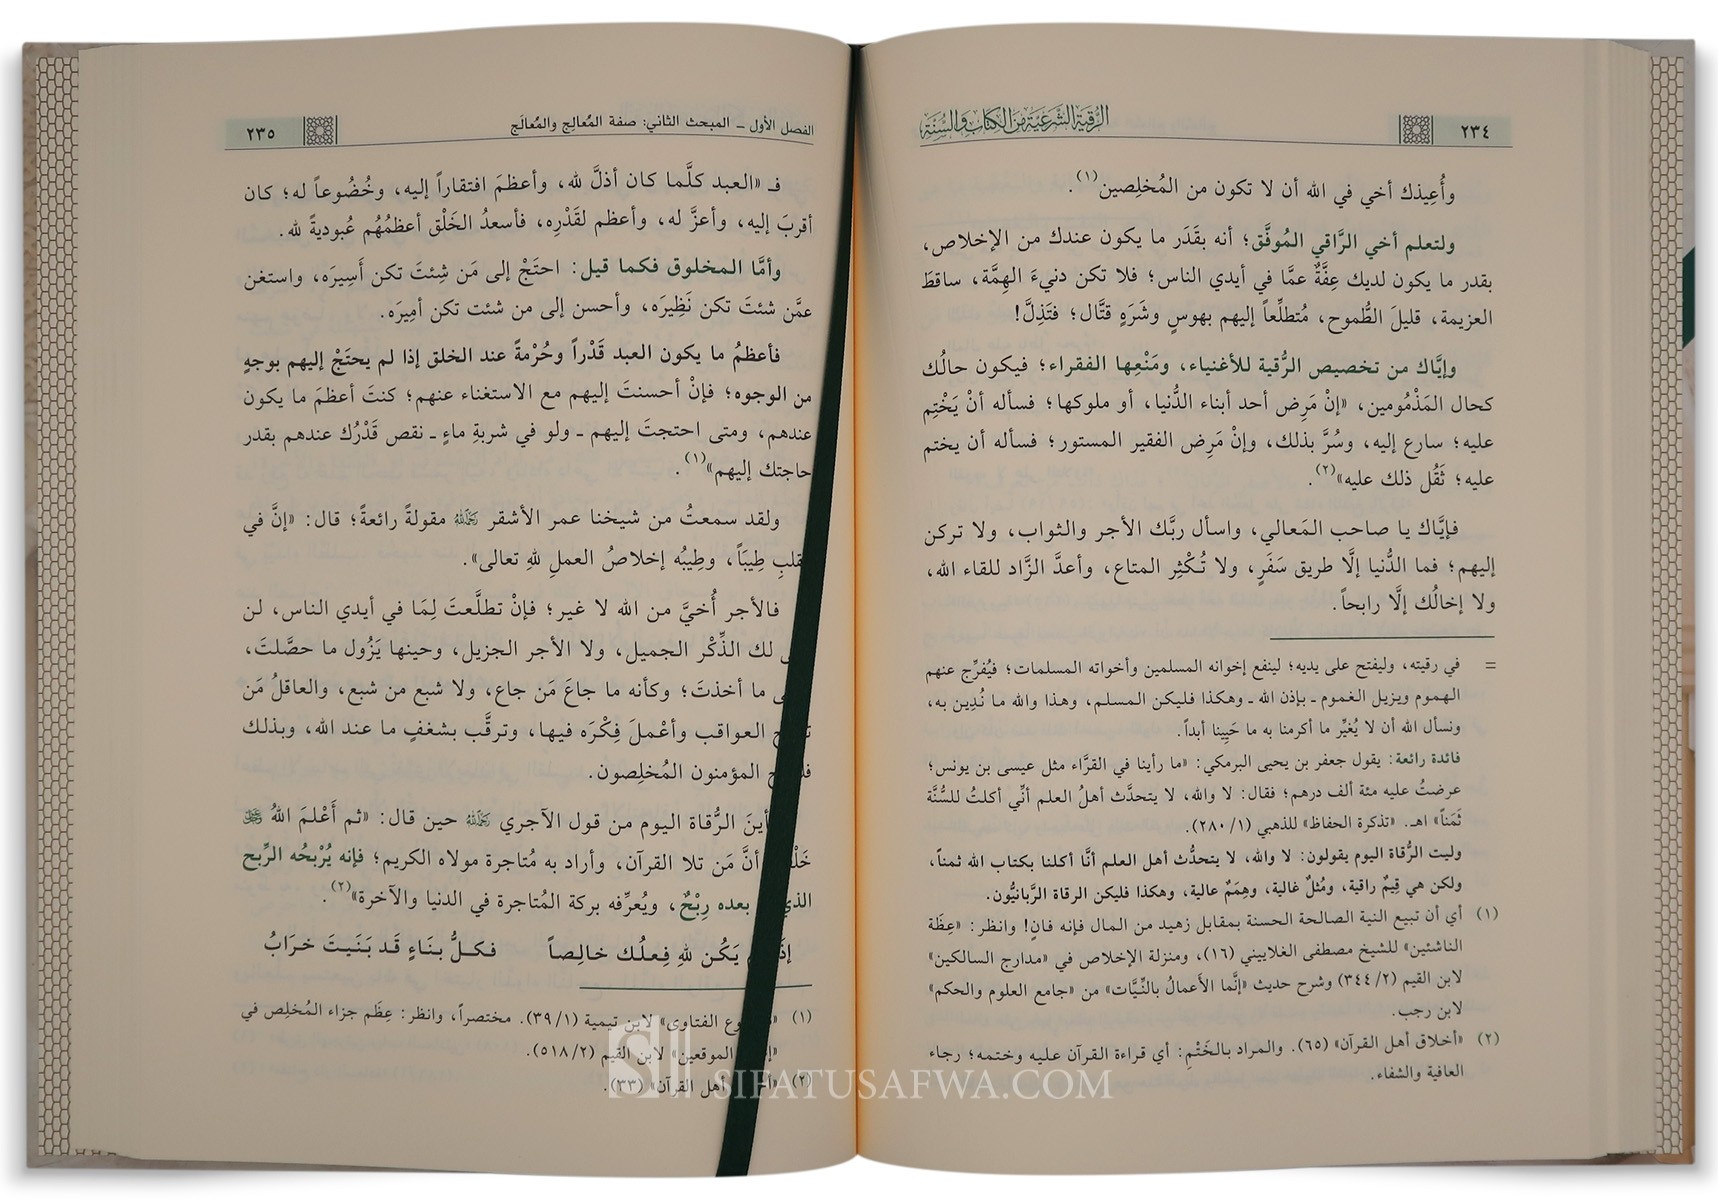 ٢٣٤
الرقية الشرعية من الكتاب والسنة
وأُعِيذك أخي في الله أن لا تكون من المُخلِصين(١).
ولتعلم أخي الرَّاقي المُوفَّق؛ أنه بقَدَر ما يكون عندك من الإخلاص،
بقدر ما يكون لديك عِفَّةٌ عمَّا في أيدي الناس؛ فلا تكن دنيءَ الهِمَّة، ساقطَ
العزيمة، قليلَ الطُّموح، مُتطلِّعاً إليهم بهوسٍ وشَرَهٍ قتَّال؛ فتَذِلَّ!
وإيَّاك من تخصيص الرُّقية للأغنياء، ومَنْعِها الفقراء؛ فيكون حالُك
كحال المَذْمُومين، «إنْ مَرِض أحد أبناء الدُّنيا، أو ملوكها؛ فسأله أنْ يَخْتِم
عليه؛ سارع إليه، وسُرَّ بذلك، وإنْ مَرِض الفقير المستور؛ فسأله أن يختم
عليه؛ ثَقُل ذلك عليه»(٢).
فإيَّاك يا صاحب المَعالي، واسأل ربَّك الأجر والثواب، ولا تركن
إليهم؛ فما الدُّنيا إلَّا طريق سَفَرٍ، ولا تُكْثِر المتاع، وأعدَّ الزَّاد للقاء الله،
ولا إخالُك إلَّا رابحاً.
= في رقيته، وليفتح على يديه؛ لينفع إخوانه المسلمين وأخواته المسلمات؛ فيُفرِّج عنهم
الهموم ويزيل الغموم ـ بإذن الله ـ وهكذا فليكن المسلم، وهذا والله ما نُدِين به،
ونسأل الله أن لا يُغيِّر ما أكرمنا به ما حَيِينا أبداً.
فائدة رائعة: يقول جعفر بن يحيى البرمكي: «ما رأينا في القرَّاء مثل عيسى بن يونس؛
عرضتُ عليه مئة ألف درهم؛ فقال: لا والله، لا يتحدَّث أهلُ العلم أنِّي أكلتُ للسُّنَّة
ثَمَناً» اهـ. «تذكرة الحفاظ» للذهبي (١/ ٢٨٠).
وليت الرُّقاة اليوم يقولون: لا والله، لا يتحدُّث أهل العلم أنَّا أكلنا بكتاب الله ثمناً،
ولكن هي قِيَمٌ راقية، ومُثلٌ غالية، وهِمَمٌ عالية، وهكذا فليكن الرقاة الرَّبانيُّون.
(١) أي أن تبيع النية الصالحة الحسنة بمقابل زهيد من المال فإنه فانٍ! وانظر: «عِظَة
الناشئين» للشيخ مصطفى الغلاييني (١٦)، ومنزلة الإخلاص في «مدارج السالكين»
لابن القيم (٢/ ٣٤٤) وشرح حديث «إنَّما الأعمالُ بالنِّيَّات» من «جامع العلوم والحكم»
لابن رجب.
(٢) «أخلاق أهل القرآن» (٦٥). والمراد بالخَتْمِ: أي قراءة القرآن عليه وختمه؛ رجاء
العافية والشفاء.
الفصل الأول ـ المبحث الثاني: صفة المُعالِج والمُعالَج
٢٣٥
فـ «العبد كلَّما كان أذلَّ لله، وأعظمَ افتقاراً إليه، وخُضُوعاً له؛ كان
أقربَ إليه، وأعزَّ له، وأعظم لقَدْرِه، فأسعدُ الخَلْق أعظمُهُم عُبوديةً لله.
وأمَّا المخلوق فكما قيل: احتَجْ إلى مَن شِئتَ تكن أَسِيرَه، واستغن
عمَّن شئتَ تكن نَظِيرَه، وأحسن إلى من شئت تكن أمِيرَه.
فأعظمُ ما يكون العبد قَدْراً وحُرْمةً عند الخلق إذا لم يحتَجْ إليهم بوجهٍ
من الوجوه؛ فإنْ أحسنتَ إليهم مع الاستغناء عنهم؛ كنتَ أعظمَ ما يكون
عندهم، ومتى احتجتَ إليهم ـ ولو في شربةِ ماءٍ ـ نقص قَدْرُك عندهم بقدر
حاجتك إليهم»(١).
ولقد سمعتُ من شيخنا عمر الأشقر رحمه الله مقولةً رائعةً؛ قال: «إنَّ في
قلبِ طِيبَاً، وطِيبُه إخلاصُ العملِ للهِ تعالى».
فالأجر أُخيَّ من الله لا غير؛ فإنْ تطلَّعتَ لِمَا في أيدي الناس، لن
لك الذِّكْر الجميل، ولا الأجر الجزيل، وحينها يَزُول ما حصَّلتَ،
ما أخذتَ؛ وكأنه ما جاعَ مَن جاع، ولا شبع من شبع، والعاقلُ مَن
العواقب وأعْملَ فِكْرَه فيها، وترقَّب بشغفٍ ما عند الله، وبذلك
المؤمنون المُخلِصون.
أينَ الرُّقاة اليوم من قول الآجري رحمه الله حين قال: «ثم أَعْلمَ اللهُ
أنَّ مَن تلا القرآن، وأراد به مُتاجرة مولاه الكريم؛ فإنه يُرْبحُه الرِّبح
الذي بعده رِبْحٌ، ويُعرِّفه بركة المُتاجرة في الدنيا والآخرة»(٢).
إذ يَكُن للهِ فِعلُك خالِصاً فكلُّ بنَاءٍ قَد بَنَيتَ خرَابُ
(١) الفتاوى» لابن تيمية (١/ ٣٩). مختصراً، وانظر: عِظَم جزاء المُخلِص في
الموقعين» لابن القيم (٢/ ٥١٨).
(٢) أهل القرآن» (٣٣).
SIFATUSAFWA.COM